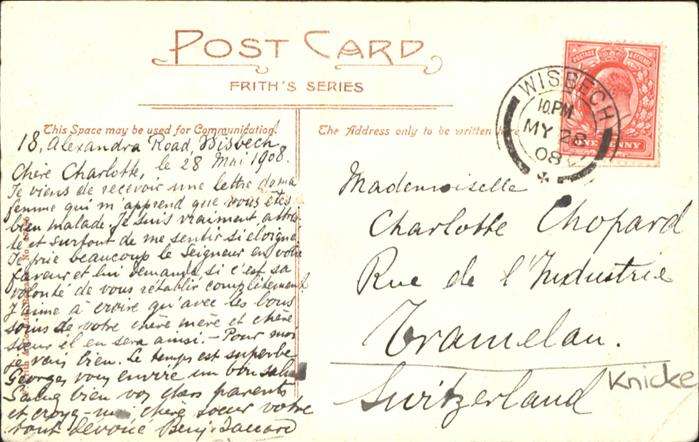 POST CARD
FRITH'S SERIES
This Space may be used for Communication.
The Address only to be written here
WISBECH
10.PM
MY 28
08
ONE PENNY
18, Alexandra Road, Wisbech
Chère Charlotte, le 28 Mai 1908.
Je viens de recevoir une lettre de ma
femme qui m'apprend que vous êtes
bien malade. Je suis vraiment attris-
té et surtout de me sentir si éloigné.
Je prie beaucoup le Seigneur en votre
faveur et lui demande si c'est sa
volonté de vous rétablir complètement
J'aime à croire qu'avec les bons
soins de votre chère mère et chère
sœur il en sera ainsi. - Pour moi
je vais bien. Le temps est superbe
Georges vous envoie un bon salut
Saluez bien vos chers parents
et croyez-moi chère sœur votre
tout dévoué Benj.
Mademoiselle
Charlotte Chopard
Rue de l'Industrie
Tramelan.
Switzerland
Knicke